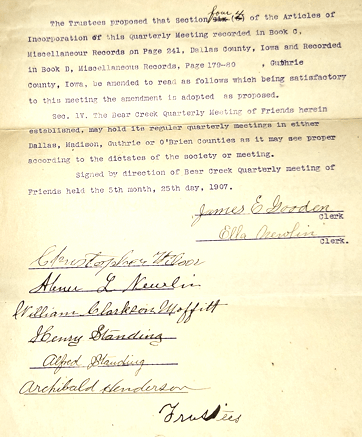 four
The Trustees proposed that Section six (4) of the Articles of
Incorporation of this Quarterly Meeting recorded in Book C,
Miscellaneour Records on Page 241, Dallas County, Iowa and Recorded
in Book D, Miscellaneous Records, Page 179-80 , Guthrie
County, Iowa, be amended to read as follows which being satisfactory
to this meeting the amendment is adopted as proposed.
Sec. IV. The Bear Creek Quarterly Meeting of Friends herein
established, may hold its regular quarterly meetings in either
Dallas, Madison, Guthrie or O'Brien Counties as it may see proper
according to the dictates of the society or meeting.
Signed by direction of Bear Creek Quarterly meeting of
Friends held the 5th month, 25th day, 1907.
James E Gooden
Clerk
Ella Newlin
Clerk.
Christopher Wilson
L Newlin
William Clarkson Moffitt
Henry Standing
Alfred Standing
Archibald Henderson
Trustees